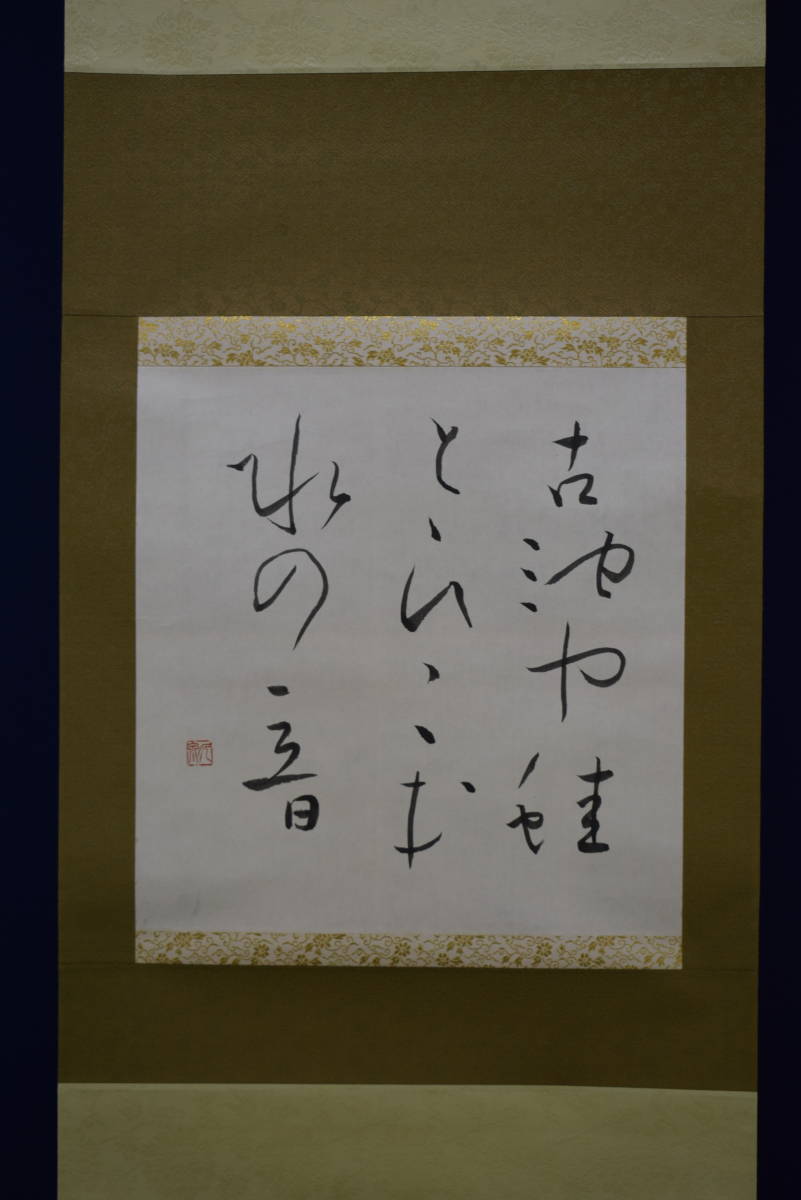 古池や蛙
とひこむ
水の音